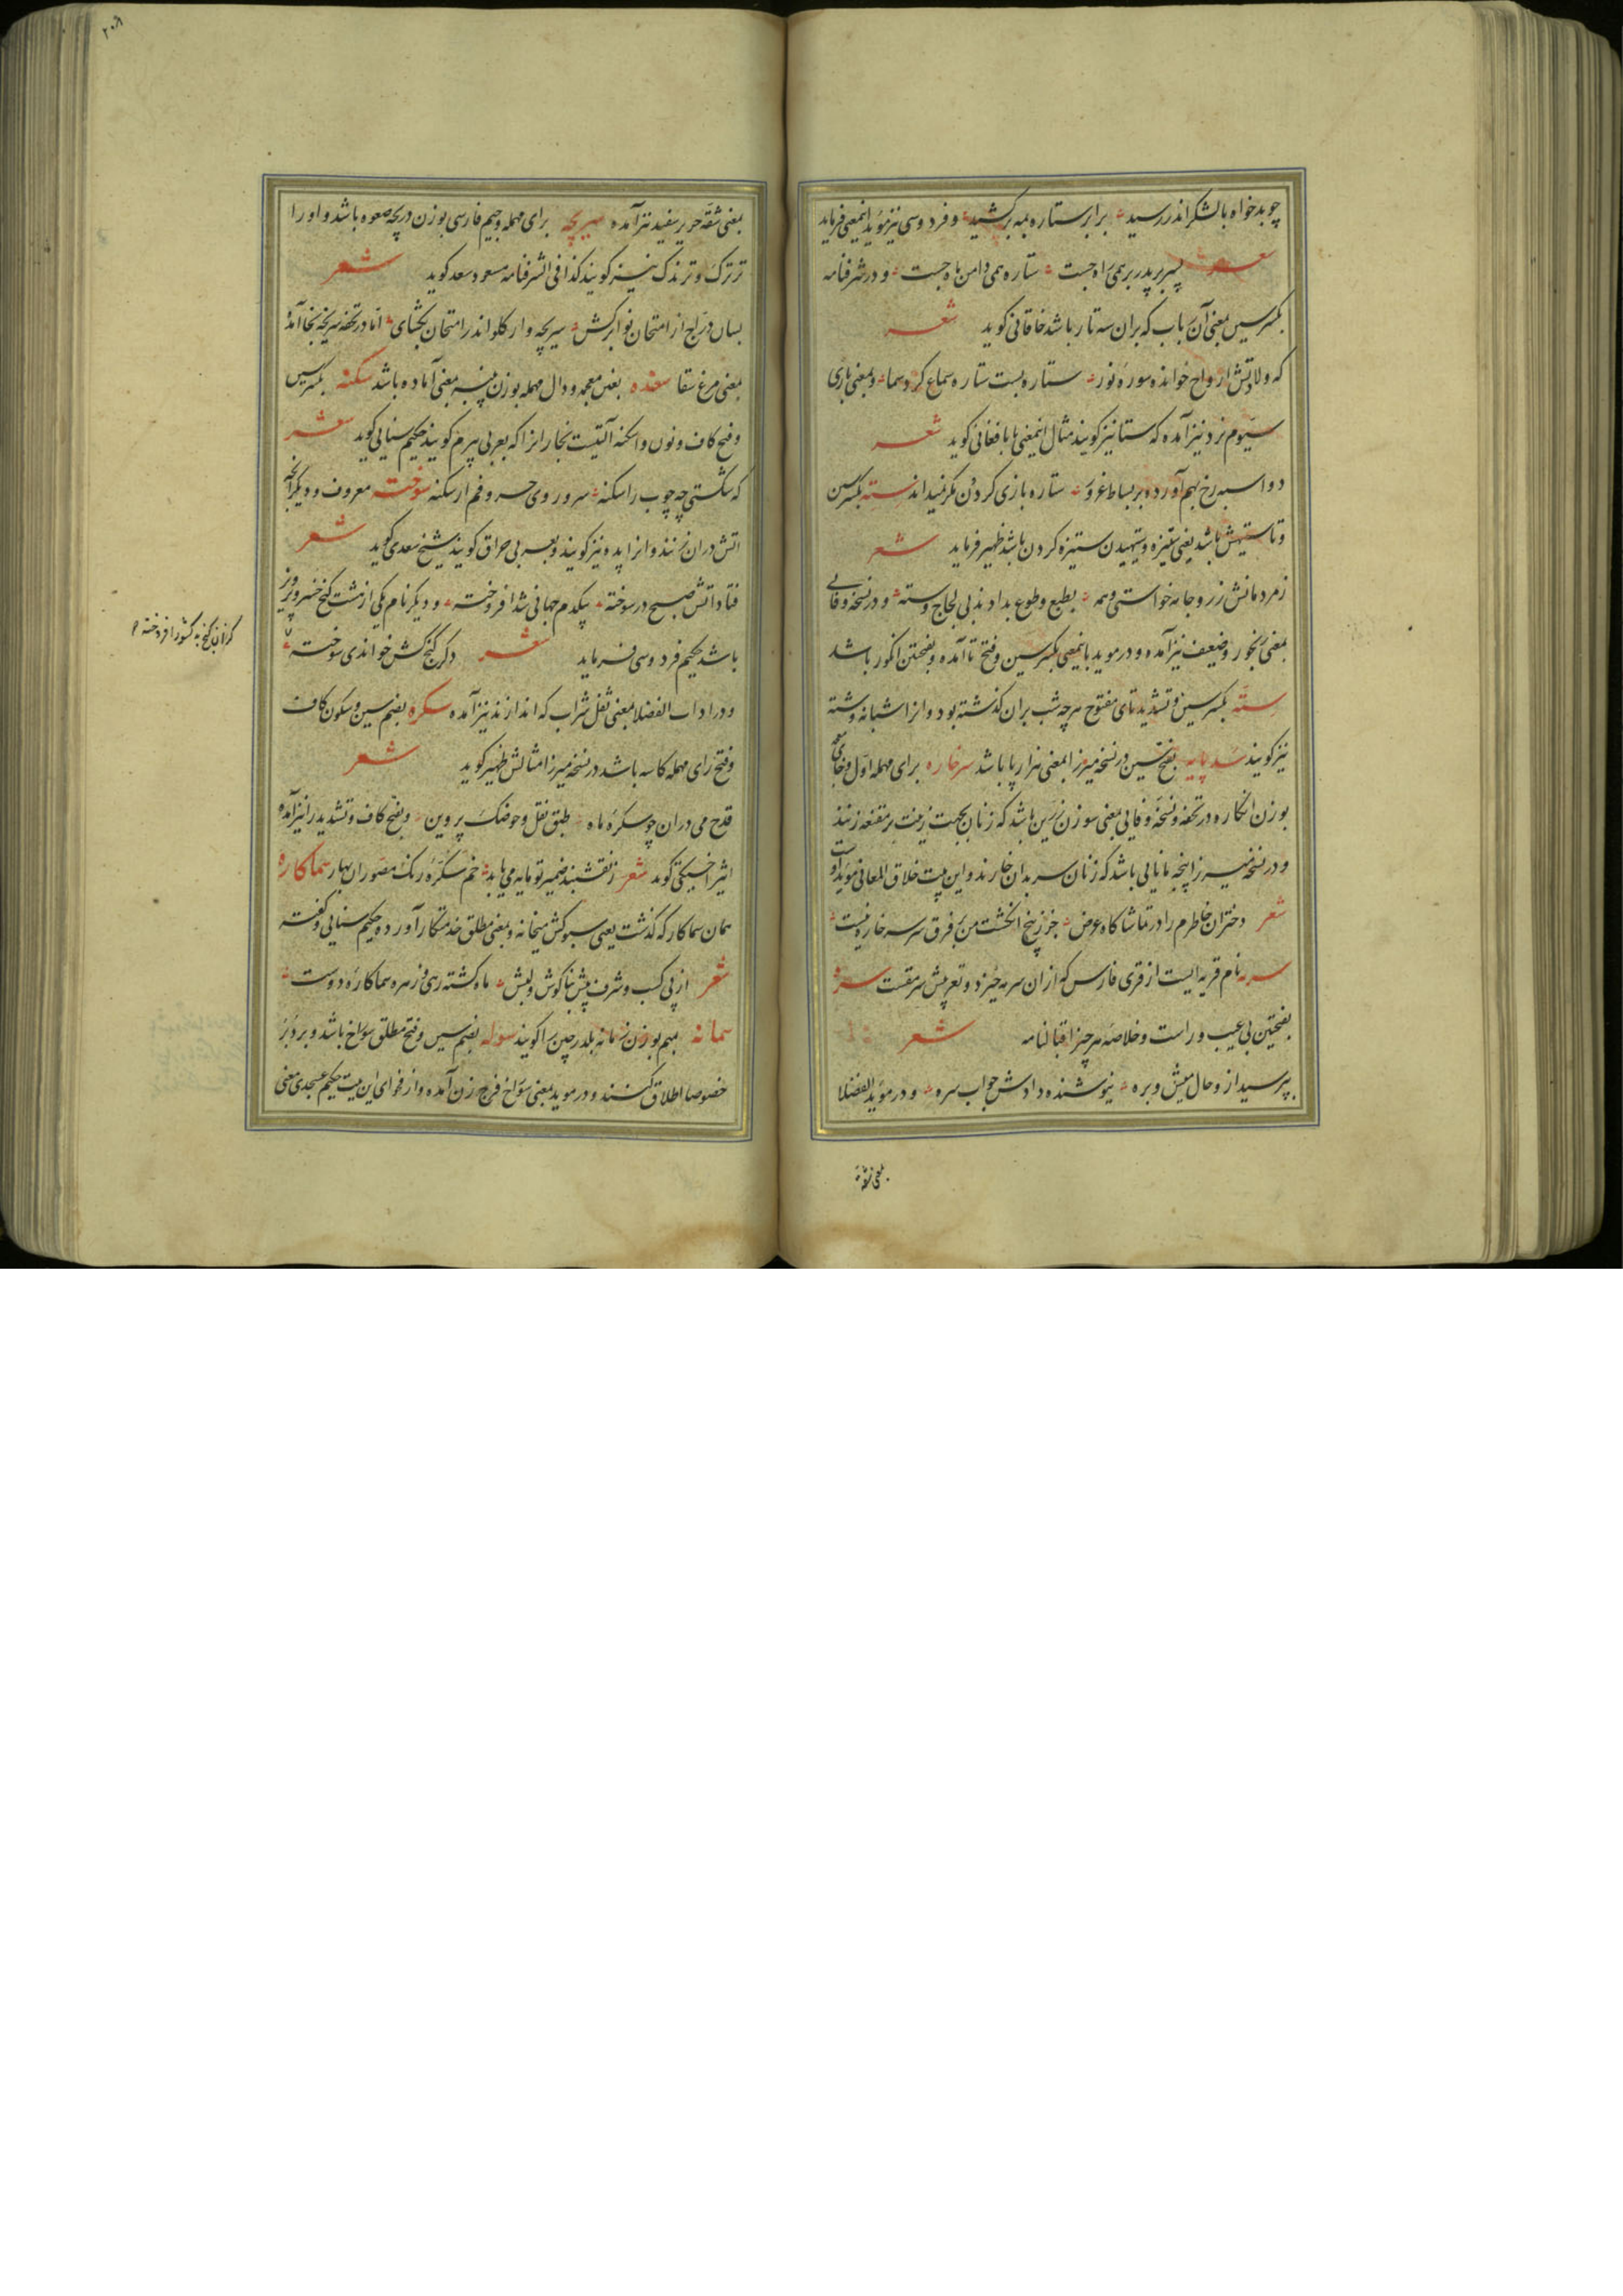 چو بدخواه با لشکر اندر رسید برابر ستاره همه برکشید و فردوسی نیز مؤید اینمعنی فرماید
شعر پسر بر پدر بر همی راه جست ستاره همی دامن ماه جست و در شرفنامه
بکسر سین بمعنی آن رباب که بران سه تار باشد خاقانی کوید شعر
که ولادتش ارواح خوانده سوره نور ستاره بست ستاره سماع کرد سما و بمعنی بازی
سیوم نرد نیز آمده که ستا نیز کویند مثال اینمعنی بابا فغانی کوید شعر
دو اسبه رخ بهم آورده بر بساط غرور ستاره بازی کردون مکر نمیداند ستهٔ بکسر سین
و تا ستیهش باشد یعنی ستیزه و ستهیدن ستیزه کردن باشد ظهیر فرماید شعر
ز مردمانش زر و جامه خواستی و همه بطبع و طوع بدادند بی لجاج و سته و در نسخه وفایی
بمعنی رنجور و ضعیف نیز آمده و در موید باینمعنی بکسر سین و فتح تا آمده و بفتحتین انکور باشد
سته بکسر سین و تشدید تای مفتوح هر چه شب بران کذشته بود و انرا شبانه و شته
نیز کویند سد پایه بفتح سین در نسخه میرزا بمعنی هزار پا باشد سرخاره برای مهمله اول و خای
بوزن انکاره در تحفه و نسخه وفایی بمعنی سوزن زرین باشد که زنان بجهت زینت بر مقنعه زنند
و در نسخه میرزا پنجه مانایی باشد که زنان سر بدان خارند و این بیت خلاق المعانی مؤید اوست
شعر دختران خاطرم را در تماشاکاه عرض جز ز پنج انکشت من بر فرق سر سرخاره نیست
سربه نام قریه ایست از قری فارس که از ان سرمه خیزد و تعریبش سرمقست سره
بفتحتین بی عیب و راست و خلاصهٔ هر چیز اقبالنامه شعر
بپرسید از و حال میش و بره نیوشنده دادش جواب سره و در مؤید الفضلا
بمعنی شقه
۲۰۸
بمعنی شقه حریر سفید نیز آمده سریچه برای مهمله و جیم فارسی بوزن دریچه صعوه باشد و او را
ترترک و ترندک نیز کویند کذا فی الشرفنامه مسعود سعد کوید شعر
بسان دراج از امتحان نوا برکش سریچه وار کلو اندر امتحان بکشای اما در تحفه سریخه بخا آمده
بمعنی مرغ سقا سغده بغین معجمه و دال مهمله بوزن پنبه بمعنی آماده باشد سکنه بکسر سین
و فتح کاف و نون و اسکنه آلتیست نجارانرا که بعربی بیرم کویند حکیم سنایی کوید شعر
که شکستی چه چوب را سکنه سر و روی حسر و فم ار سکنه سوخته معروف و دیکر آنچه
اتش دران زنند و انرا پده نیز کویند و بعربی حراق کویند شیخ سعدی کوید شعر
فتاد اتش صبح در سوخته بیکدم جهانی شد افروخته و دیکر نام یکی از هشت کنج خسرو پرویز
باشد حکیم فردوسی فرماید شعر دکر کنج کش خواندی سوخته
کزان کنج به کشور افروخته
و در اداب الفضلا بمعنی ثفل شراب که اندازند نیز آمده سکره بضم سین و سکون کاف
و فتح رای مهمله کاسه باشد در نسخه میرزا مثالش ظهیر کوید شعر
قدح می دران چو سکره ماه طبق نقل و حوضک پروین و بفتح کاف و تشدید را نیز آمده
اثیر اخسیکتی کوید شعر ز نقشبند ضمیر تو مایه می یابد خم سکرهٔ رنک مصوران بهار سماکاره
همان سماکار که کذشت یعنی سبوکش میخانه و بمعنی مطلق خدمتکار آورده حکیم سنایی کفته
شعر از پی کسب و شرف پیش بناکوش و لبش ماه کشته رهی و زهره سماکارهٔ دوست
سمانه بمیم بوزن زمانه بلدرچین را کویند سوله بضم سین و فتح مطلق سوراخ باشد و بر دبر
خصوصا اطلاق کنند و در موید بمعنی سوراخ فرج زن آمده و از فحوای این بیت حکیم عسجدی معنی